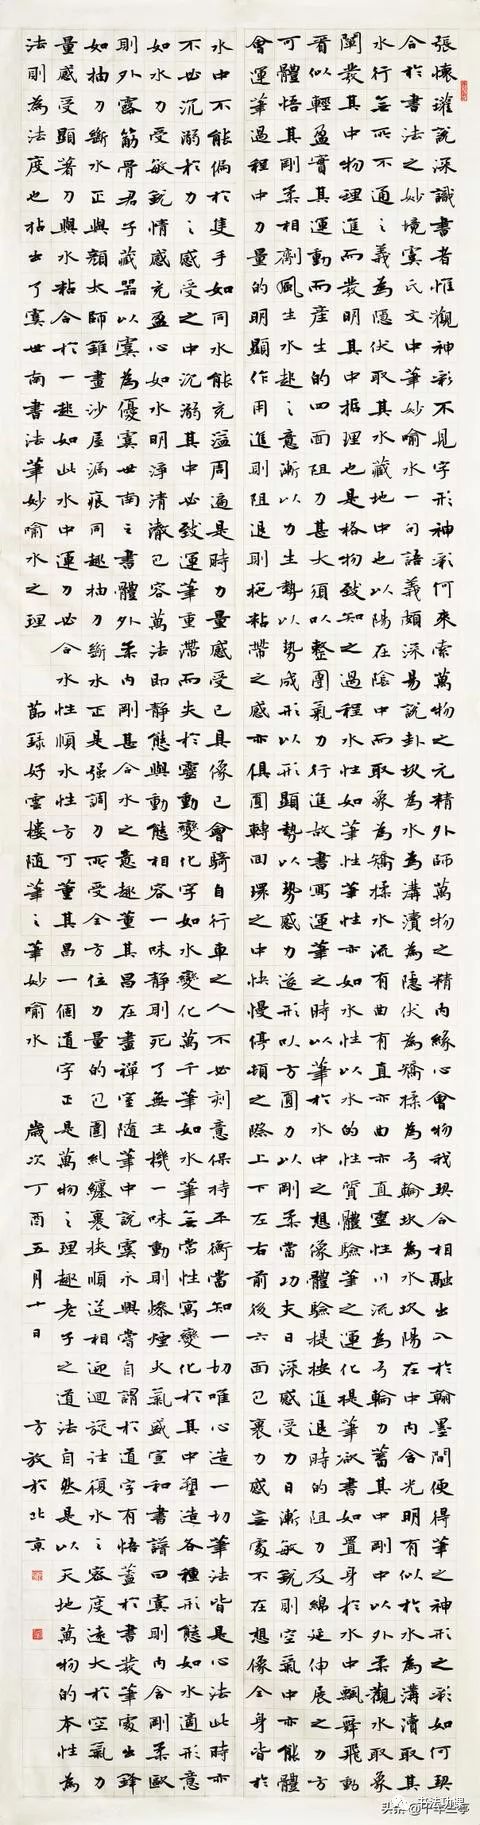 張懷瓘說深識書者惟觀神彩不見字形神彩何來索萬物之元精外師萬物之精內緣心會物我契合相融出入於翰墨間便得筆之神形之彩如何契
合於書法之妙境虞氏文中筆妙喻水一句語義頗深易說卦坎為水為溝瀆為隱伏為矯揉為弓輪坎為水坎陽在中內含光明有似於水為溝瀆取其
水行無所不通之義為隱伏取其水藏地中也以陽在陰中而取象為矯揉水流有曲有直亦曲亦直靈性川流為弓輪力蓄其中剛中以外柔觀水取象
闡發其中物理進而發明其中據理也是格物致知之過程水性如筆性筆性亦如水性以水的性質體驗筆之運化提筆欲書如置身於水中飄舞飛動
看似輕盈實其運動而產生的四面阻力甚大須以整團氣力行進故書寫運筆之時以筆於水中之想像體驗提按進退時的阻力及綿延伸展之力方
可體悟其剛柔相劑風生水趣之意漸以力生勢以勢成形以形顯勢以勢感力造形以方圓力以剛柔當功夫日深感受力日漸敏銳則空氣中亦能體
會運筆過程中力量的明顯作用進則阻退則拖粘帶之感亦俱圓轉回環之中快慢停頓之際上下左右前後六面已裹力感無處不在想像全身皆於
水中不能偏於隻手如同水能充溢周遍是時力量感受已具像已會騎自行車之人不必刻意保持平衡當知一切唯心造一切筆法皆是心法此時亦
不必沉溺於力之感受之中沉溺其中必致運筆重滯而失於靈動變化字如水變化萬千筆如水筆無常性寓變化於其中塑造各種形態如水適形意
如水力受敏銳情感充盈心如水明淨清澈包容萬法即靜態與動態相容一味靜則死了無生機一味動則燥煙火氣盛宣和書譜曰虞則內含剛柔歐
則外露筋骨君子藏器以虞為優虞世南之書體外柔內剛甚合水之意趣董其昌在畫禪室隨筆中說虞永興嘗自謂於道字有悟蓋於書發筆處出鋒
如抽刀斷水正與顏太師錐畫沙屋漏痕同趣抽刀斷水正是強調力所受全方位力量的包圍糾纏裹挾順逆相迎迴旋往復水之容度遠大於空氣力
量感受顯著力與水粘合於一趣如此水中運力必合水性順水性方可董其昌一個道字正是萬物之理趣老子之道法自然是以天地萬物的本性為
法則為法度也拈出了虞世南書法筆妙喻水之理 節錄好雲樓隨筆之筆妙喻水 歲次丁酉五月十日 方放於北京
书法功课
头条@千年兰亭